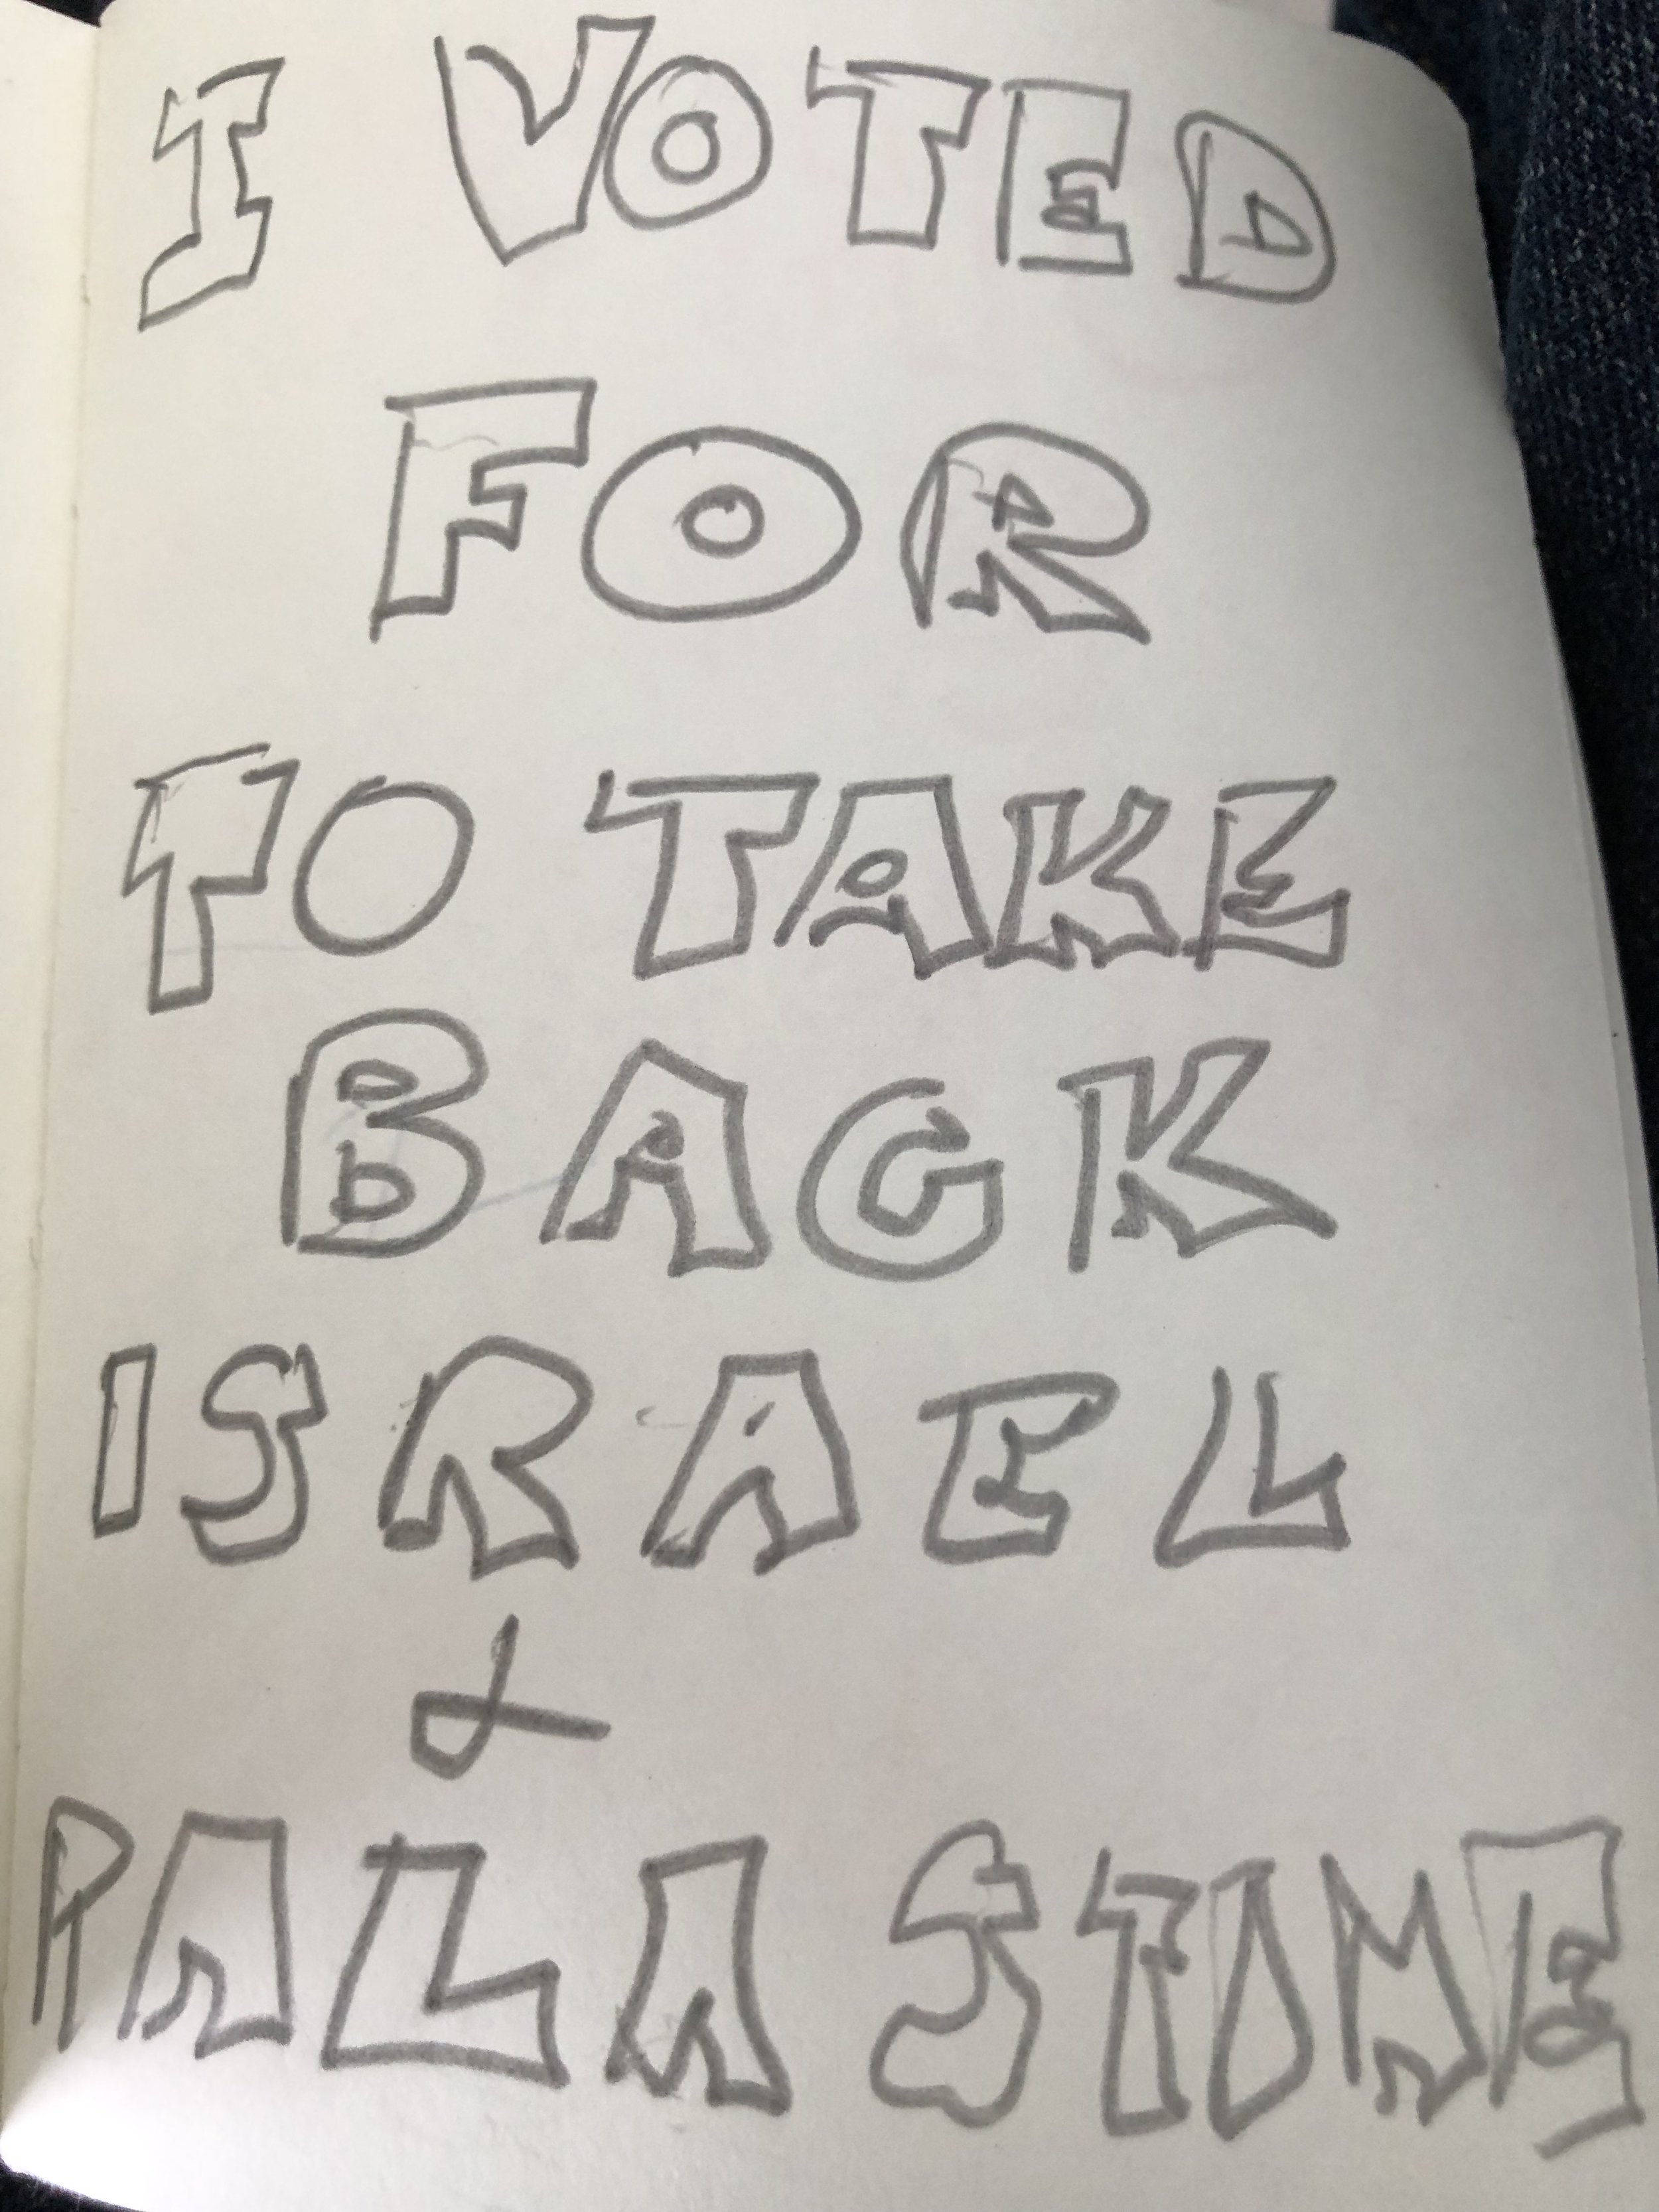 I VOTED
FOR
TO TAKE
BACK
ISRAEL
&
PALA STONE